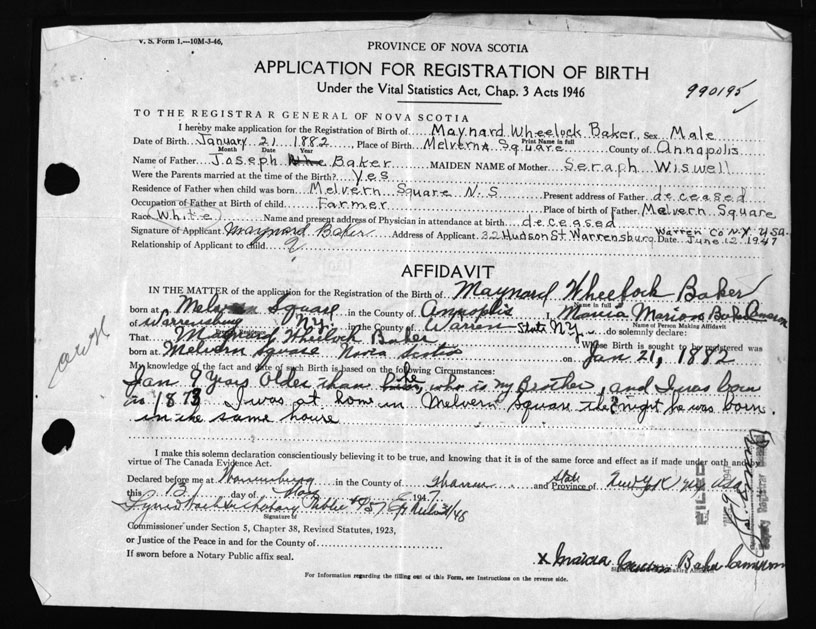 V. S. Form 1.—10M-3-46.
PROVINCE OF NOVA SCOTIA
APPLICATION FOR REGISTRATION OF BIRTH
Under the Vital Statistics Act, Chap. 3 Acts 1946
990195
TO THE REGISTRAR GENERAL OF NOVA SCOTIA
I hereby make application for the Registration of Birth of Maynard Wheelock Baker, Sex Male
Print Name in full
Date of Birth January 21 1882 Place of Birth Melvern Square County of Annapolis
Month Date Year
Name of Father Joseph Baker MAIDEN NAME of Mother Seraph Wiswell
Were the Parents married at the time of the Birth? Yes
Residence of Father when child was born Melvern Square N.S Present address of Father deceased
Occupation of Father at Birth of child Farmer Place of birth of Father Melvern Square
Race (White) Name and present address of Physician in attendance at birth deceased
Warren Co N.Y. USA.
Signature of Applicant Maynard Baker Address of Applicant 32 Hudson St. Warrensburg Date June 12 1947
Relationship of Applicant to child
AFFIDAVIT
IN THE MATTER of the application for the Registration of Birth of Maynard Wheelock Baker
Name in full
born at Square in the County of Annapolis I, Marion
Name of Person Making Affidavit
of Warrensburg N.Y. in the County of Warren State N.Y. do solemnly declare:
That Wheelock Baker Whose Birth is sought to be registered was
born at Melvern Square Nova Scotia on Jan 21, 1882
My knowledge of the fact and date of such Birth is based on the following Circumstances:
9 Years Older than he, who is my Brother, and I was born
1873 I was at home in Melvern Square the night he was born.
in the same house
I make this solemn declaration conscientiously believing it to be true, and knowing that it is of the same force and effect as if made under oath and by
virtue of The Canada Evidence Act.
Declared before me at Warrensburg in the County of Warren and State Province of New York
this 13 day of 1947.
Notary Public
Signature of
Commissioner under Section 5, Chapter 38, Revised Statutes, 1923,
or Justice of the Peace in and for the County of
If sworn before a Notary Public affix seal.
X Baker Cameron
For Information regarding the filling out of this Form, see Instructions on the reverse side.
FILED
Deputy Registrar